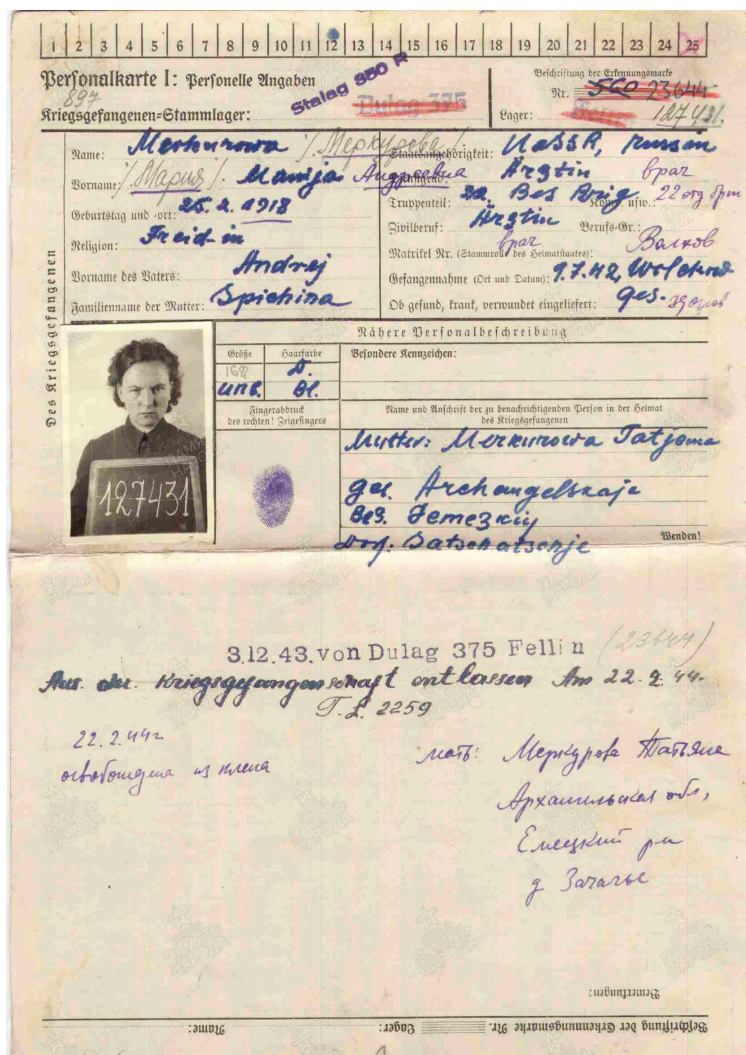 1 2 3 4 5 6 7 8 9 10 11 12 13 14 15 16 17 18 19 20 21 22 23 24 25
Personalkarte I: Personelle Angaben
897
Kriegsgefangenen-Stammlager:
Stalag 350 R
Dulag 375
Beschriftung der Erkennungsmarke
Nr. 560 23644
Lager: 127431
Des Kriegsgefangenen
Name: Merkurowa /Меркурова/
Vorname: /Мария/ Marija Андреевна
Geburtstag und -ort: 25.2.1918
Religion:
Vorname des Vaters: Andrej
Familienname der Mutter: Spichina
Staatsangehörigkeit: UdSSR, russin
Dienstgrad: Ärztin врач
Truppenteil: 22. Komp. usw.: 22 отд
Zivilberuf: Ärztin Berufs-Gr.:
врач
Matrikel Nr. (Stammrolle des Heimatstaates):
Gefangennahme (Ort und Datum): 9.7.42, Wolchow
Ob gesund, krank, verwundet eingeliefert: ges. здоров
Nähere Personalbeschreibung
Größe Haarfarbe Besondere Kennzeichen:
Fingerabdruck
des rechten! Zeigefingers
Name und Anschrift der zu benachrichtigenden Person in der Heimat
des Kriegsgefangenen
Mutter: Merkurowa Tatjana
Archangelskaja
Dorf:
127431
Wenden!
3.12.43. von Dulag 375 Fellin (23644)
Aus der Kriegsgefangenschaft entlassen Am 22.2.44.
2259
22.2.44г
освобождена из плена
мать: Меркурова Татьяна
Архангельская обл,
Емецкий рн
д Зачачье
Bemerkungen:
Beschriftung der Erkennungsmarke Nr. Lager: Name: